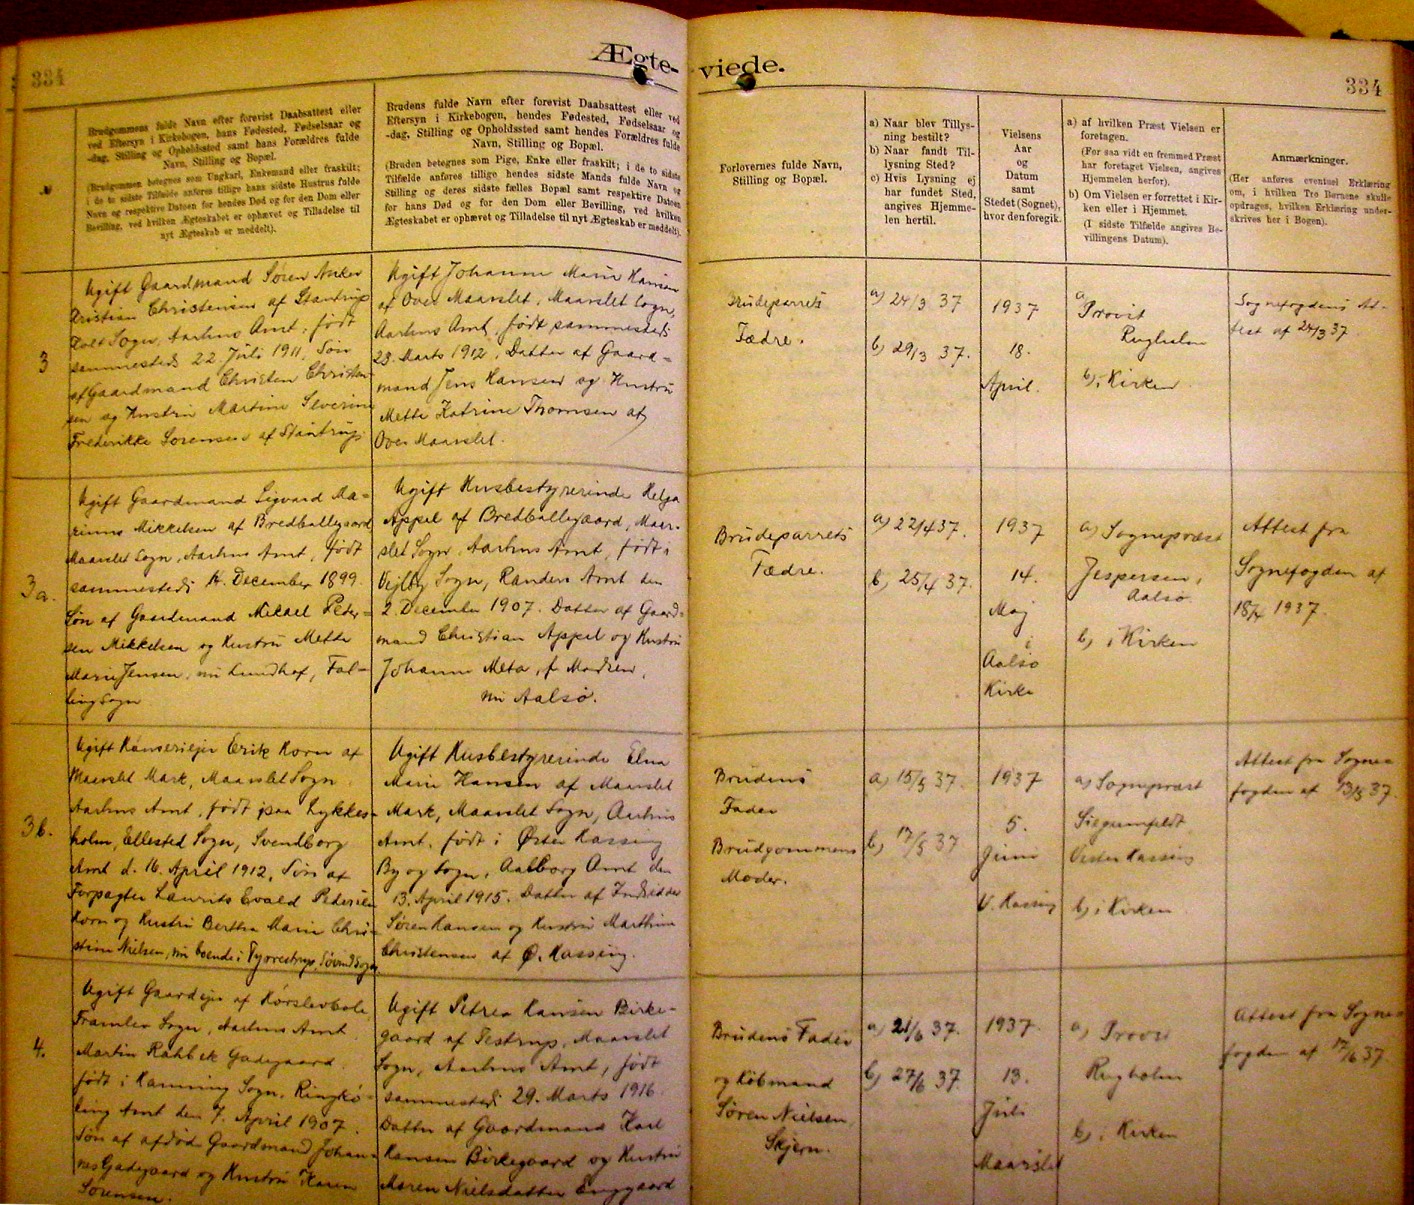 334
Ægte-
viede.
334
Brudgommens fulde Navn efter forevist Daabsattest eller
ved Eftersyn i Kirkebogen, hans Fødested, Fødselsaar og
-dag, Stilling og Opholdssted samt hans Forældres fulde
Navn, Stilling og Bopæl.
(Brudgommen betegnes som Ungkarl, Enkemand eller fraskilt;
i de to sidste Tilfælde anføres tillige hans sidste Hustrus fulde
Navn og respektive Datoen for hendes Død og for den Dom eller
Bevilling, ved hvilken Ægteskabet er ophævet og Tilladelse til
nyt Ægteskab er meddelt).
Brudens fulde Navn efter forevist Daabsattest eller ved
Eftersyn i Kirkebogen, hendes Fødested, Fødselsaar og
-dag, Stilling og Opholdssted samt hendes Forældres fulde
Navn, Stilling og Bopæl.
(Bruden betegnes som Pige, Enke eller fraskilt; i de to sidste
Tilfælde anføres tillige hendes sidste Mands fulde Navn og
Stilling og deres sidste fælles Bopæl samt respektive Datoen
for hans Død og for den Dom eller Bevilling, ved hvilken
Ægteskabet er ophævet og Tilladelse til nyt Ægteskab er meddelt).
Forlovernes fulde Navn,
Stilling og Bopæl.
a) Naar blev Tillys-
ning bestilt?
b) Naar fandt Til-
lysning Sted?
c) Hvis Lysning ej
har fundet Sted,
angives Hjemme-
len hertil.
Vielsens
Aar
og
Datum
samt
Stedet (Sognet),
hvor den foregik.
a) af hvilken Præst Vielsen er
foretagen.
(For saa vidt en fremmed Præst
har foretaget Vielsen, angives
Hjemmelen herfor).
b) Om Vielsen er forrettet i Kir-
ken eller i Hjemmet.
(I sidste Tilfælde angives Be-
villingens Datum).
Anmærkninger.
(Her anføres eventuel Erklæring
om, i hvilken Tro Børnene skulle
opdrages, hvilken Erklæring under-
skrives her i Bogen).
3
Ugift Gaardmand Søren Anker
Kristian Christensen af Stautrup
Kolt Sogn, Aarhus Amt, født
sammesteds 22. Juli 1911, Søn
af Gaardmand Christen Christen-
sen og Hustru Martine Severine
Frederikke Sørensen af Stautrup
Ugift Johanne Marie Hansen
af Over Maarslet, Maarslet Sogn,
Aarhus Amt, født sammesteds
23. Marts 1912, Datter af Gaard-
mand Jens Hansen og Hustru
Mette Katrine Thomsen af
Over Maarslet.
Brudeparrets
Fædre.
a) 24/3 37
b) 29/3 37.
1937
18.
April.
a) Provst
Rugholm
b) i Kirken
Sognefogdens At-
test af 24/3 37
3a.
Ugift Gaardmand Sigvard Ma-
rinus Mikkelsen af Bredballegaard
Maarslet Sogn, Aarhus Amt, født
sammesteds 14. December 1899.
Søn af Gaardmand Mikael Peder-
sen Mikkelsen og Hustru Mette
Marie Jensen, nu Lundhof, Fal-
ling Sogn
Ugift Husbestyrerinde Helga
Appel af Bredballegaard, Maar-
slet Sogn, Aarhus Amt, født i
Vejlby Sogn, Randers Amt den
2. December 1907. Datter af Gaard-
mand Christian Appel og Hustru
Johanne Meta, f. Madsen,
nu Aalsø.
Brudeparrets
Fædre.
a) 22/4 37.
b) 25/4 37.
1937
14.
Maj
i
Aalsø
Kirke
a) Sognepræst
Jespersen,
Aalsø
b) i Kirken
Attest fra
Sognefogden af
18/4 1937.
3b.
Erik Korn af
Maarslet Mark, Maarslet Sogn
Aarhus Amt, født paa Lykkes-
holm, Ellested Sogn, Svendborg
Amt d. 16. April 1912, Søn af
Forpagter Laurits Evald Pedersen
Korn og Hustru Bertha Marie Chri-
stine Nielsen, nu boende i
Ugift Husbestyrerinde Elna
Marie Hansen af Maarslet
Mark, Maarslet Sogn, Aarhus
Amt, født i Øster Hassing
By og Sogn, Aalborg Amt den
13. April 1915. Datter af
Søren Hansen og Hustru Marthine
Christensen af Ø. Hassing.
Brudens
Fader
Brudgommens
Moder.
a) 15/5 37.
b) 17/5 37
1937
5.
Juni
V. Hassing
a) Sognepræst
Vester Hassing
b) i Kirken
Attest fra Sogne-
fogden af 13/5 37.
4.
Ugift Gaardejer af Kørslevbole
Framlev Sogn, Aarhus Amt
Martin Rahbek Gadegaard
født i Hanning Sogn, Ringkø-
bing Amt den 7. April 1907.
Søn af afdøde Gaardmand Johan-
nes Gadegaard og Hustru Karen
Sørensen.
Ugift Petrea Hansen Birke-
gaard af Testrup, Maarslet
Sogn, Aarhus Amt, født
sammesteds 29. Marts 1916
Datter af Gaardmand Karl
Hansen Birkegaard og Hustru
Maren Nielsdatter Enggaard
Brudens Fader
og Købmand
Søren Nielsen,
Skjern.
a) 21/6 37.
b) 27/6 37
1937.
13.
Juli
Maarslet
a) Provst
Rugholm
b) i Kirken
Attest fra Sogne-
fogden af 17/6 37.